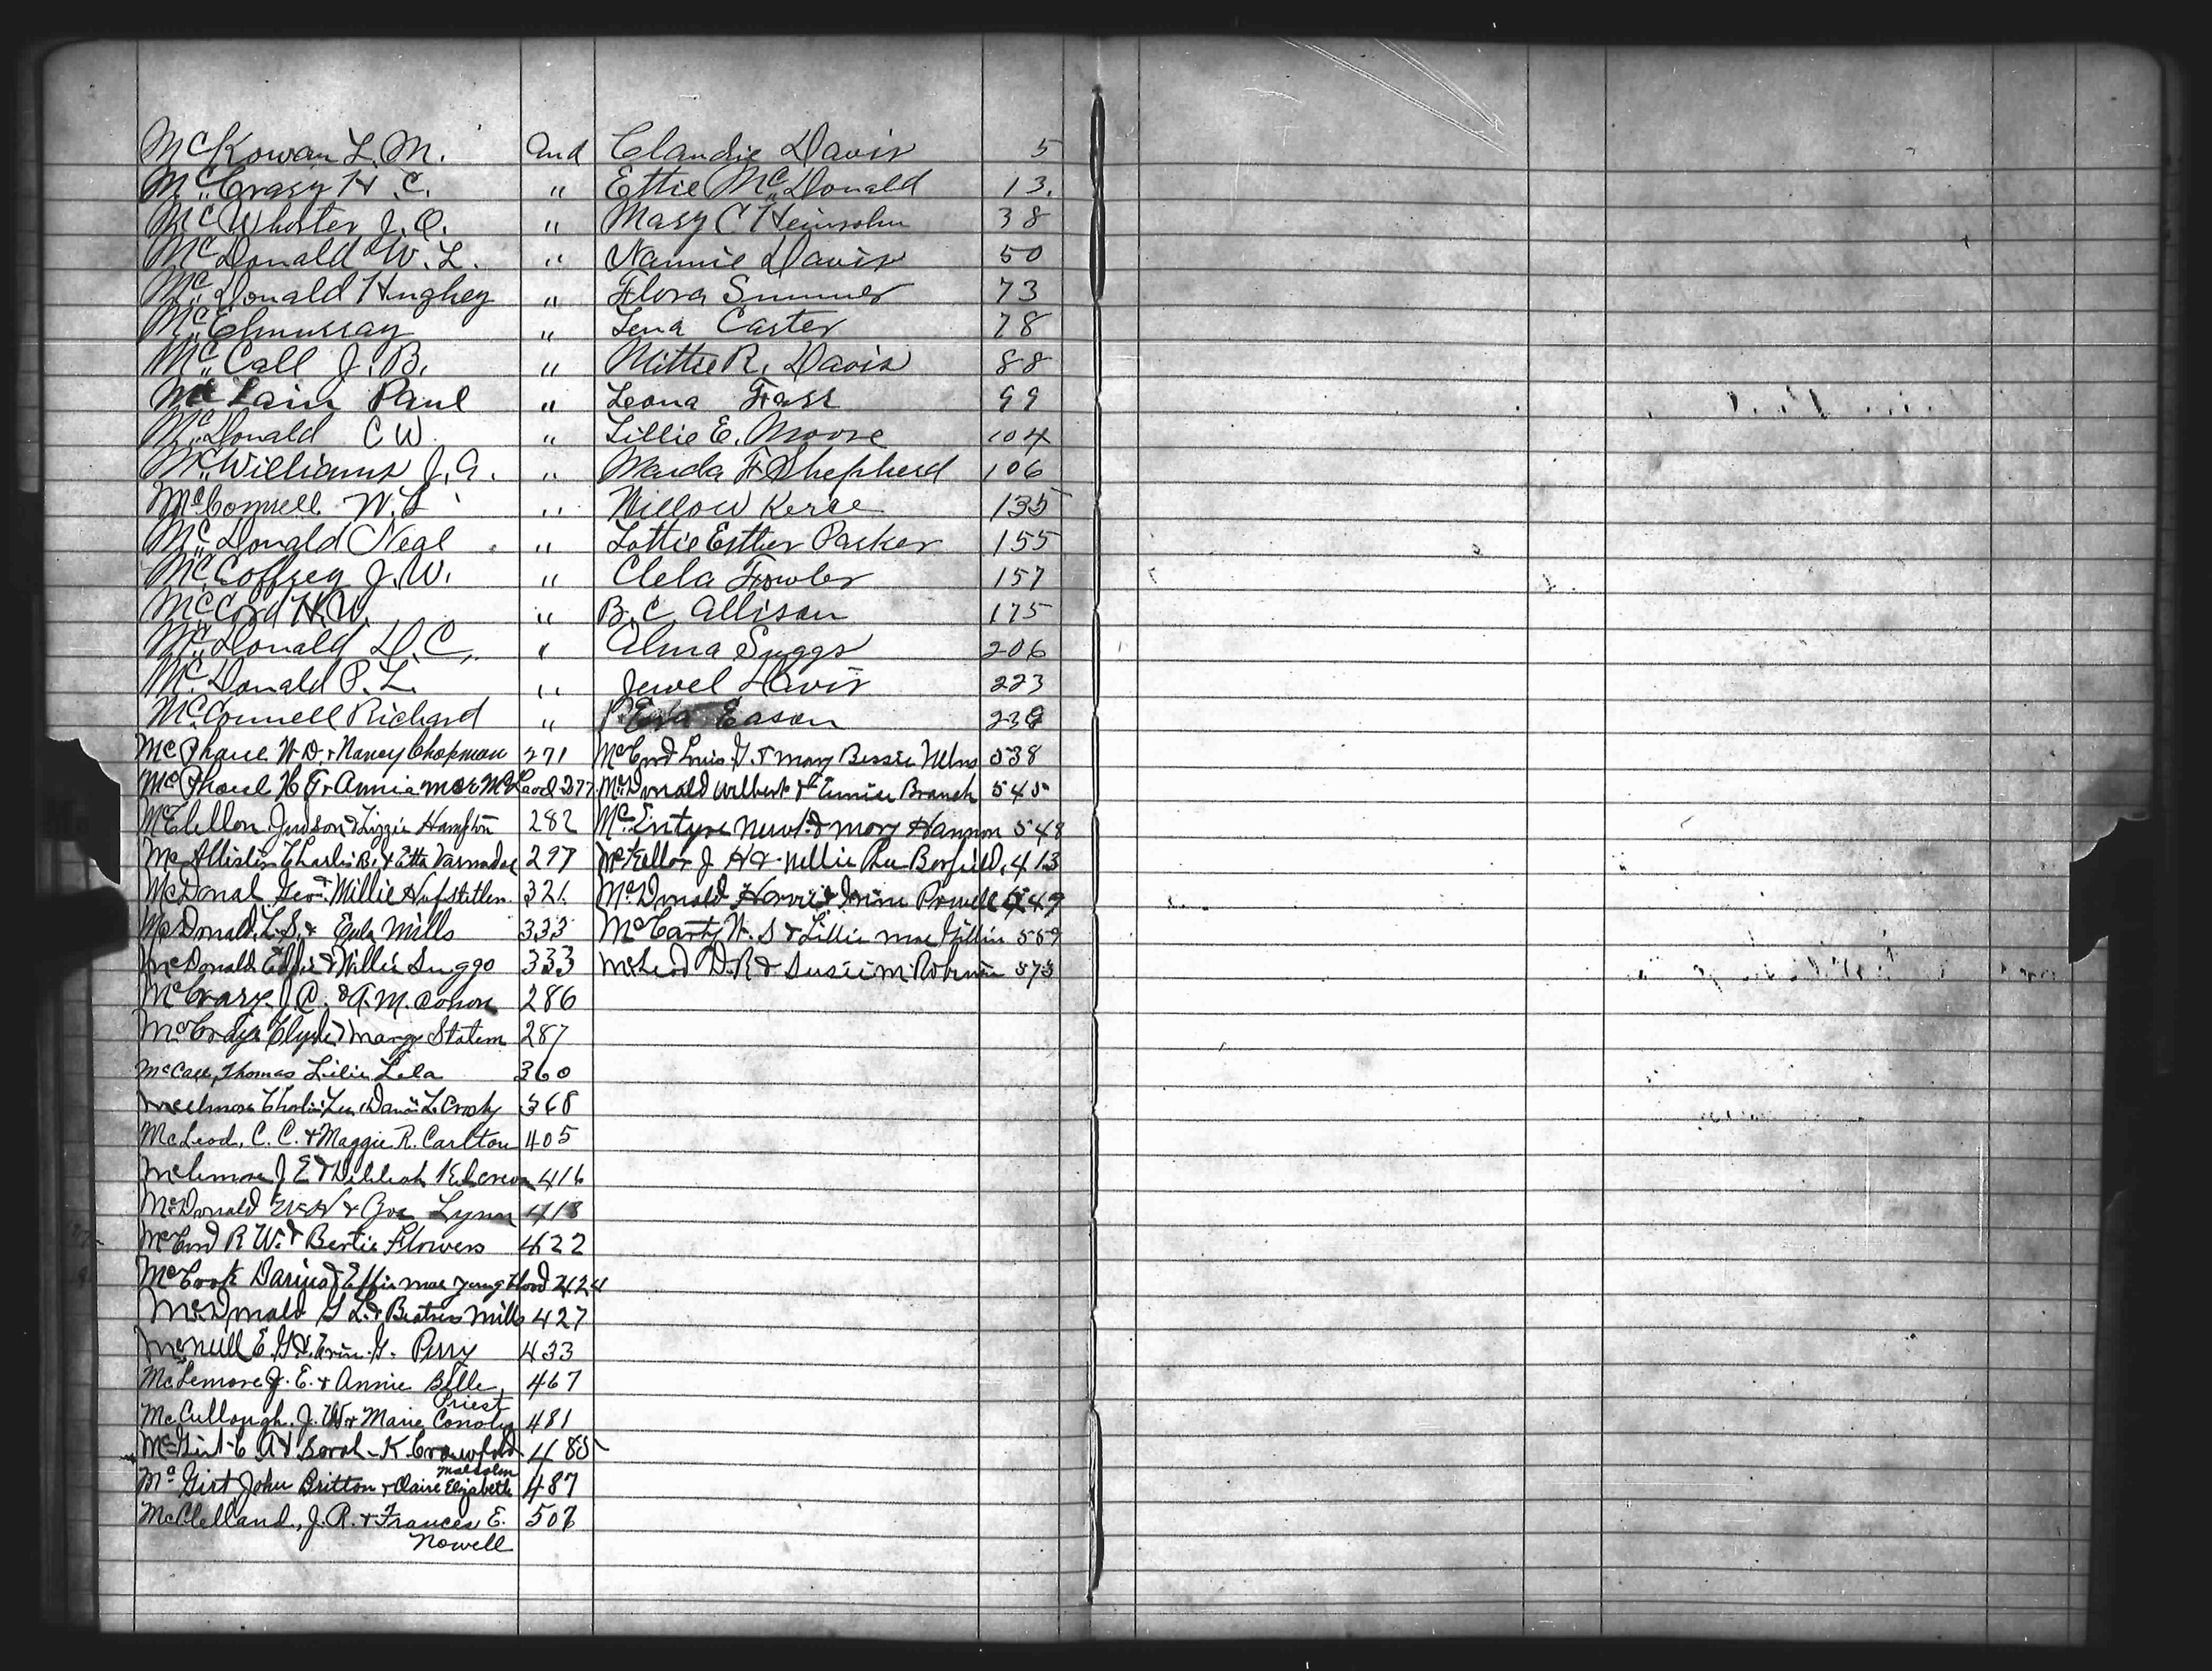 McKowan L. M. And Claudie Davis 5
McCrary H. C. " Ettie McDonald 13.
McWhorter J. O. " Mary C Heinsohn 38
McDonald W. L. " Nannie Davis 50
McDonald Hughey " Flora Sumner 73
McElmurray " Lena Carter 78
McCall J. B. " Mittie R. Davis 88
McLain Paul " Leona Fass 99
McDonald C W. " Lillie E. Moore 104
McWilliams J. A. " Maida F. Shepherd 106
McConnell W. L " Willow Kerce 135
McDonald Neal " Lottie Esther Parker 155
McCoffrey J. W. " Clela Fowler 157
McCord H. W. " B. C. Allison 175
McDonald D. C. " Alma Suggs 206
McDonald P. L. " Jewel Davis 223
McConnell Richard " Eason
McPhaul W. D. & Nancy Chapman 271 McCord Louis G. & Mary Bessie Nelms 538
McPhaul H F & Annie Mae McLeod 277 McDonald Wilbert & Eunice Branch 545
McClellon Judson & Lizzie Hampton 282 McEntyre & Mary Hannon 548
McAllister Charlie B. & Etta Varnadoe 297 McKellar J H & Nellie Barfield. 413
McDonal Geo & Millie Hufstetler. 321. McDonald & Powell 449
McDonald. L. S. & Eula Mills 333 McCarty W. S & Lillie Mae Gillis 559
McDonald Eddie & Willie Suggs 333 McLeod D. R & Susie M. 573
McCrary. J C. & A. M. 286
McCrays Clyde & Margy Statem 287
McCall, Thomas Lilie Lela 360
McElmore Charlie Lee, L. Crosby 368
McLeod, C. C. & Maggie R. Carlton 405
McLemore J. E & Delilah 416
McDonald & Lynn 418
McCord R W. & Bertie Flowers 422
McCook Darius & Effie Mae Youngblood 424
McDonald G L. & Beatrice Mills 427
McNeill E. G. & G. Perry 433
McLemore J. E. & Annie Belle 467
Priest
McCullough. J. W. & Marie Conoly 481
McGirt C A & Sarah K. Crawford 485
Malcolm
McGirt John Britton & Claire Elizabeth 487
McClelland., J. R. & Frances E. 507
Nowell